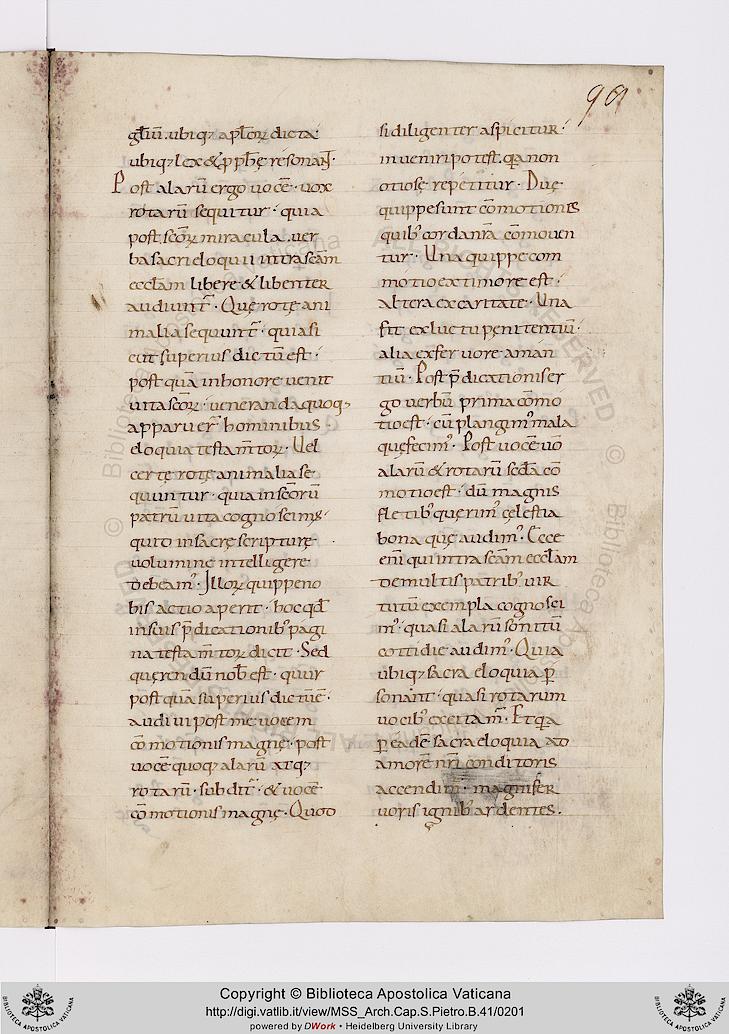 98
gl̅iu̅. ubiq; apl̅oꝝ dicta·
ubiq; lex & ꝓph̅ę resonant̅·
Post alaru̅ ergo uoce̅· uox
rotaru̅ sequitur· quia
post sc̅oꝝ miracula. uer
ba sacri eloquii intra sc̅am
eccl̅am libere & libenter
audiunt̅· Quę rotę ani
malia sequunt̅· quia si
cut superius dictu̅ est·
post qua̅ in honore uenit
uita sc̅oꝝ· ueneranda quoq;
apparuer̅ hominibus·
eloquia testam̅toꝝ· Uel
certe rotę animalia se
quuntur· quia in sc̅oru̅
patru̅ uita cognoscim;·
quid in sacrę scripturę
uolumine intellegere
debeam᾽· Illoꝝ quippe no
bis actio aperit· hoc qd̅
in suis p̅dicationib᾽ pagi
na testam̅toꝝ dicit· Sed
querendu̅ nob̅ est· quur
post qua̅ superius dictu̅ e̅·
audiui post me uocem
co̅motionis magnę· post
uoce̅ quoq; alaru̅ atq;
rotaru̅· subdit̅· & uoce̅
co̅motionis magnę· Quod
si diligenter aspicitur·
inueniri potest. q̅a non
otiosę repetitur· Duę
quippe sunt co̅motiones
quib᾽ corda n̅ra co̅mouen
tur· Una quippe com
motio ex timore est·
altera ex caritate· Una
fit ex luctu penitentiu̅·
alia ex feruore aman
tiu̅· Post p̅dicationis er
go uerbu̅ prima co̅mo
tio est· cu̅ plangim᾽ mala
quę fecim᾽· Post uoce̅ uo̅
alaru̅ & rotaru̅ sc̅da co̅
motio est· du̅ magnis
fletib᾽ querim᾽ cęlestia
bona quę audim᾽· Ecce
eni̅ qui intra sc̅am eccl̅am
de multis patrib᾽ uir
tutu̅ exempla cognosci
m᾽· quasi alaru̅ sonitu̅
cottidie audim᾽· Quia
ubiq; sacra eloquia p̲
sonant· quasi rotarum
uocib᾽ excitam᾽· Et q̅a
p̲ eade̅ sacra eloquia ad
amore̅ n̅ri conditoris
accendim᾽· magni fer
uoris ignib᾽ ardentes.
Copyright © Biblioteca Apostolica Vaticana
http://digi.vatlib.it/view/MSS_Arch.Cap.S.Pietro.B.41/0201
powered by DWork • Heidelberg University Library